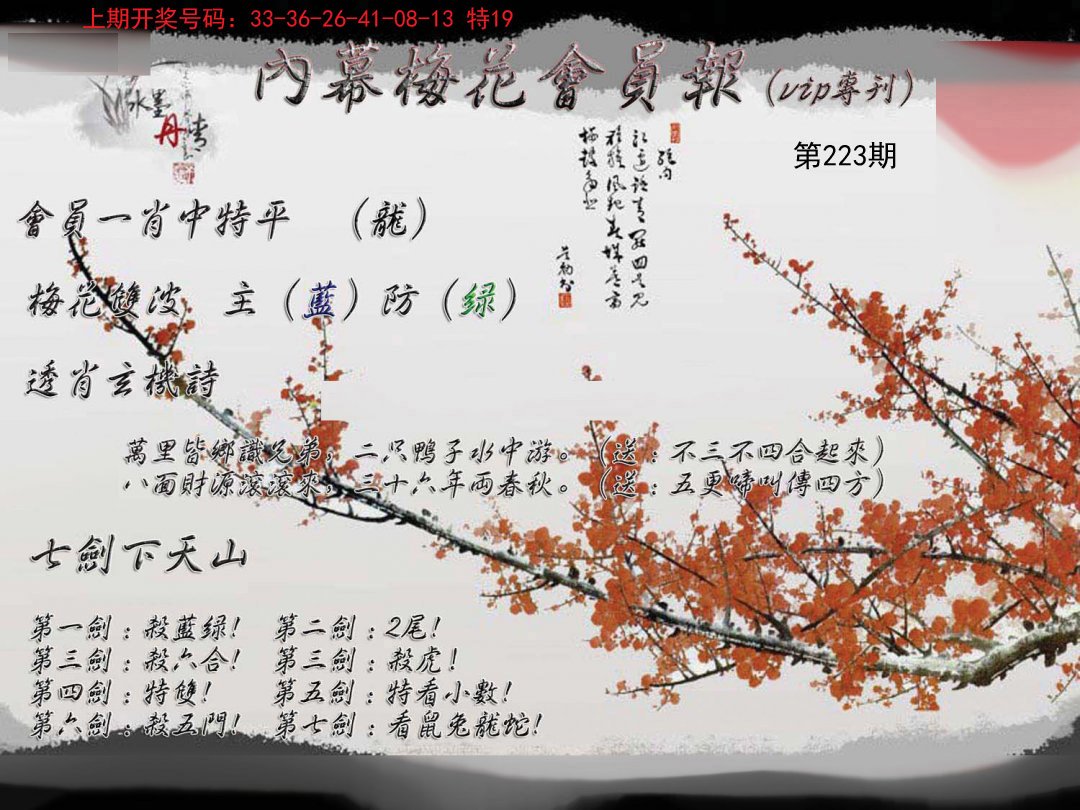 上期开奖号码：33-36-26-41-08-13 特19
內幕梅花會員報（vip專刊）
水墨
丹青
第223期
會員一肖中特平 （龍）
梅花雙波 主（藍）防（绿）
透肖玄機詩
萬里皆鄉識兄弟，二只鴨子水中游。（送：不三不四合起來）
八面財源滾滾來，三十六年兩春秋。（送：五更啼叫傳四方）
七劍下天山
第一劍：殺藍绿！ 第二劍：2尾！
第三劍：殺六合！ 第三劍：殺虎！
第四劍：特雙！ 第五劍：特看小數！
第六劍：殺五門！ 第七劍：看鼠兔龍蛇！